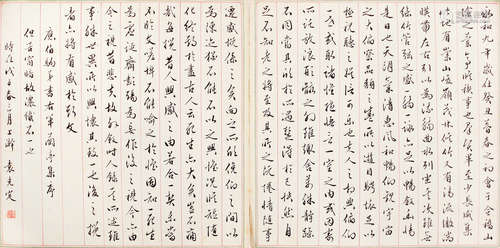 永和九年歲在癸丑暮春之初會于會稽山
陰之蘭亭修禊事也羣賢畢至少長咸集
此地有崇山峻領茂林修竹又有清流激湍
映帶左右引以為流觴曲水列坐其次雖無
絲竹管弦之盛一觴一詠亦足以暢敘幽情
是日也天朗氣清惠風和暢仰觀宇宙
之大俯察品類之盛所以遊目騁懷足以
極視聽之娛信可樂也夫人之相與俯仰
一世或取諸懷抱悟言一室之內或因寄
所託放浪形骸之外雖趣舍萬殊靜躁
不同當其欣於所遇暫得於己快然自
足不知老之將至及其所之既惓情隨事
遷感慨係之矣向之所欣俛仰之間以
為陳迹猶不能不以之興懷況脩短隨
化終期於盡古人云死生亦大矣豈不痛
哉每攬昔人興感之由若合一契未嘗
不臨文嗟悼不能喻之於懷固知一死生
為虛誕齊彭殤為妄作後之視今亦由
今之視昔悲夫故列敘時人錄其所述雖
世殊事異所以興懷其致一也後之攬
者亦將有感於斯文
蘭亭集序
時在戊春三月上澣